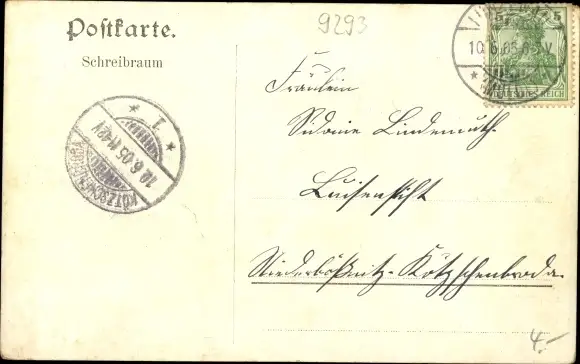 Postkarte.
Schreibraum
9293
5 5
10.6.05.
DEUTSCHES REICH
KÖTZSCHENBRODA
10.6.05.11-12V.
* 1 *
Fräulein
Sidonie Lindemuth.
Luisenstift
Niederlößnitz-Kötzschenbroda.
4.-